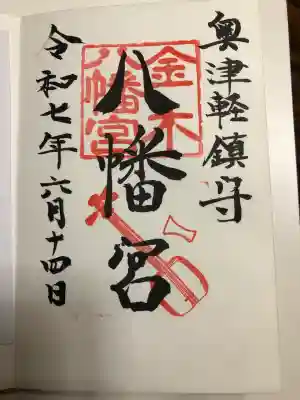 奥津軽鎮守
八幡宮
金木
八幡宮
令和七年六月十四日